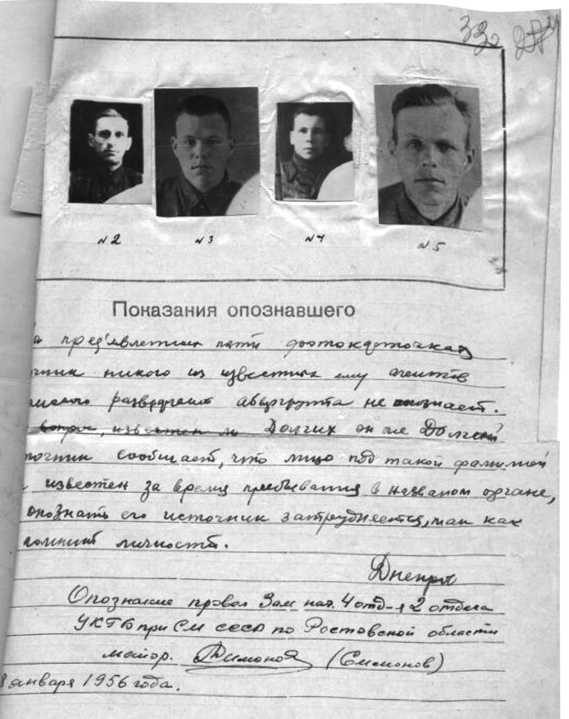 332
№2 №3 №4 №5
Показания опознавшего
На пред'явленных пяти фотокарточках
никого из известных ему агентов
абвергруппы не опознает.
вопрос, известен ли Долгих он же Долгий
сообщает, что лицо под такой фамилией
известен за время пребывания в названом органе,
опознать его источник затрудняется, так как
личность.
Днепр
Опознание провел Зам нач. 4 отд-я 2 отдела
УКГБ при СМ СССР по Ростовской области
майор. (Симонов)
января 1956 года.